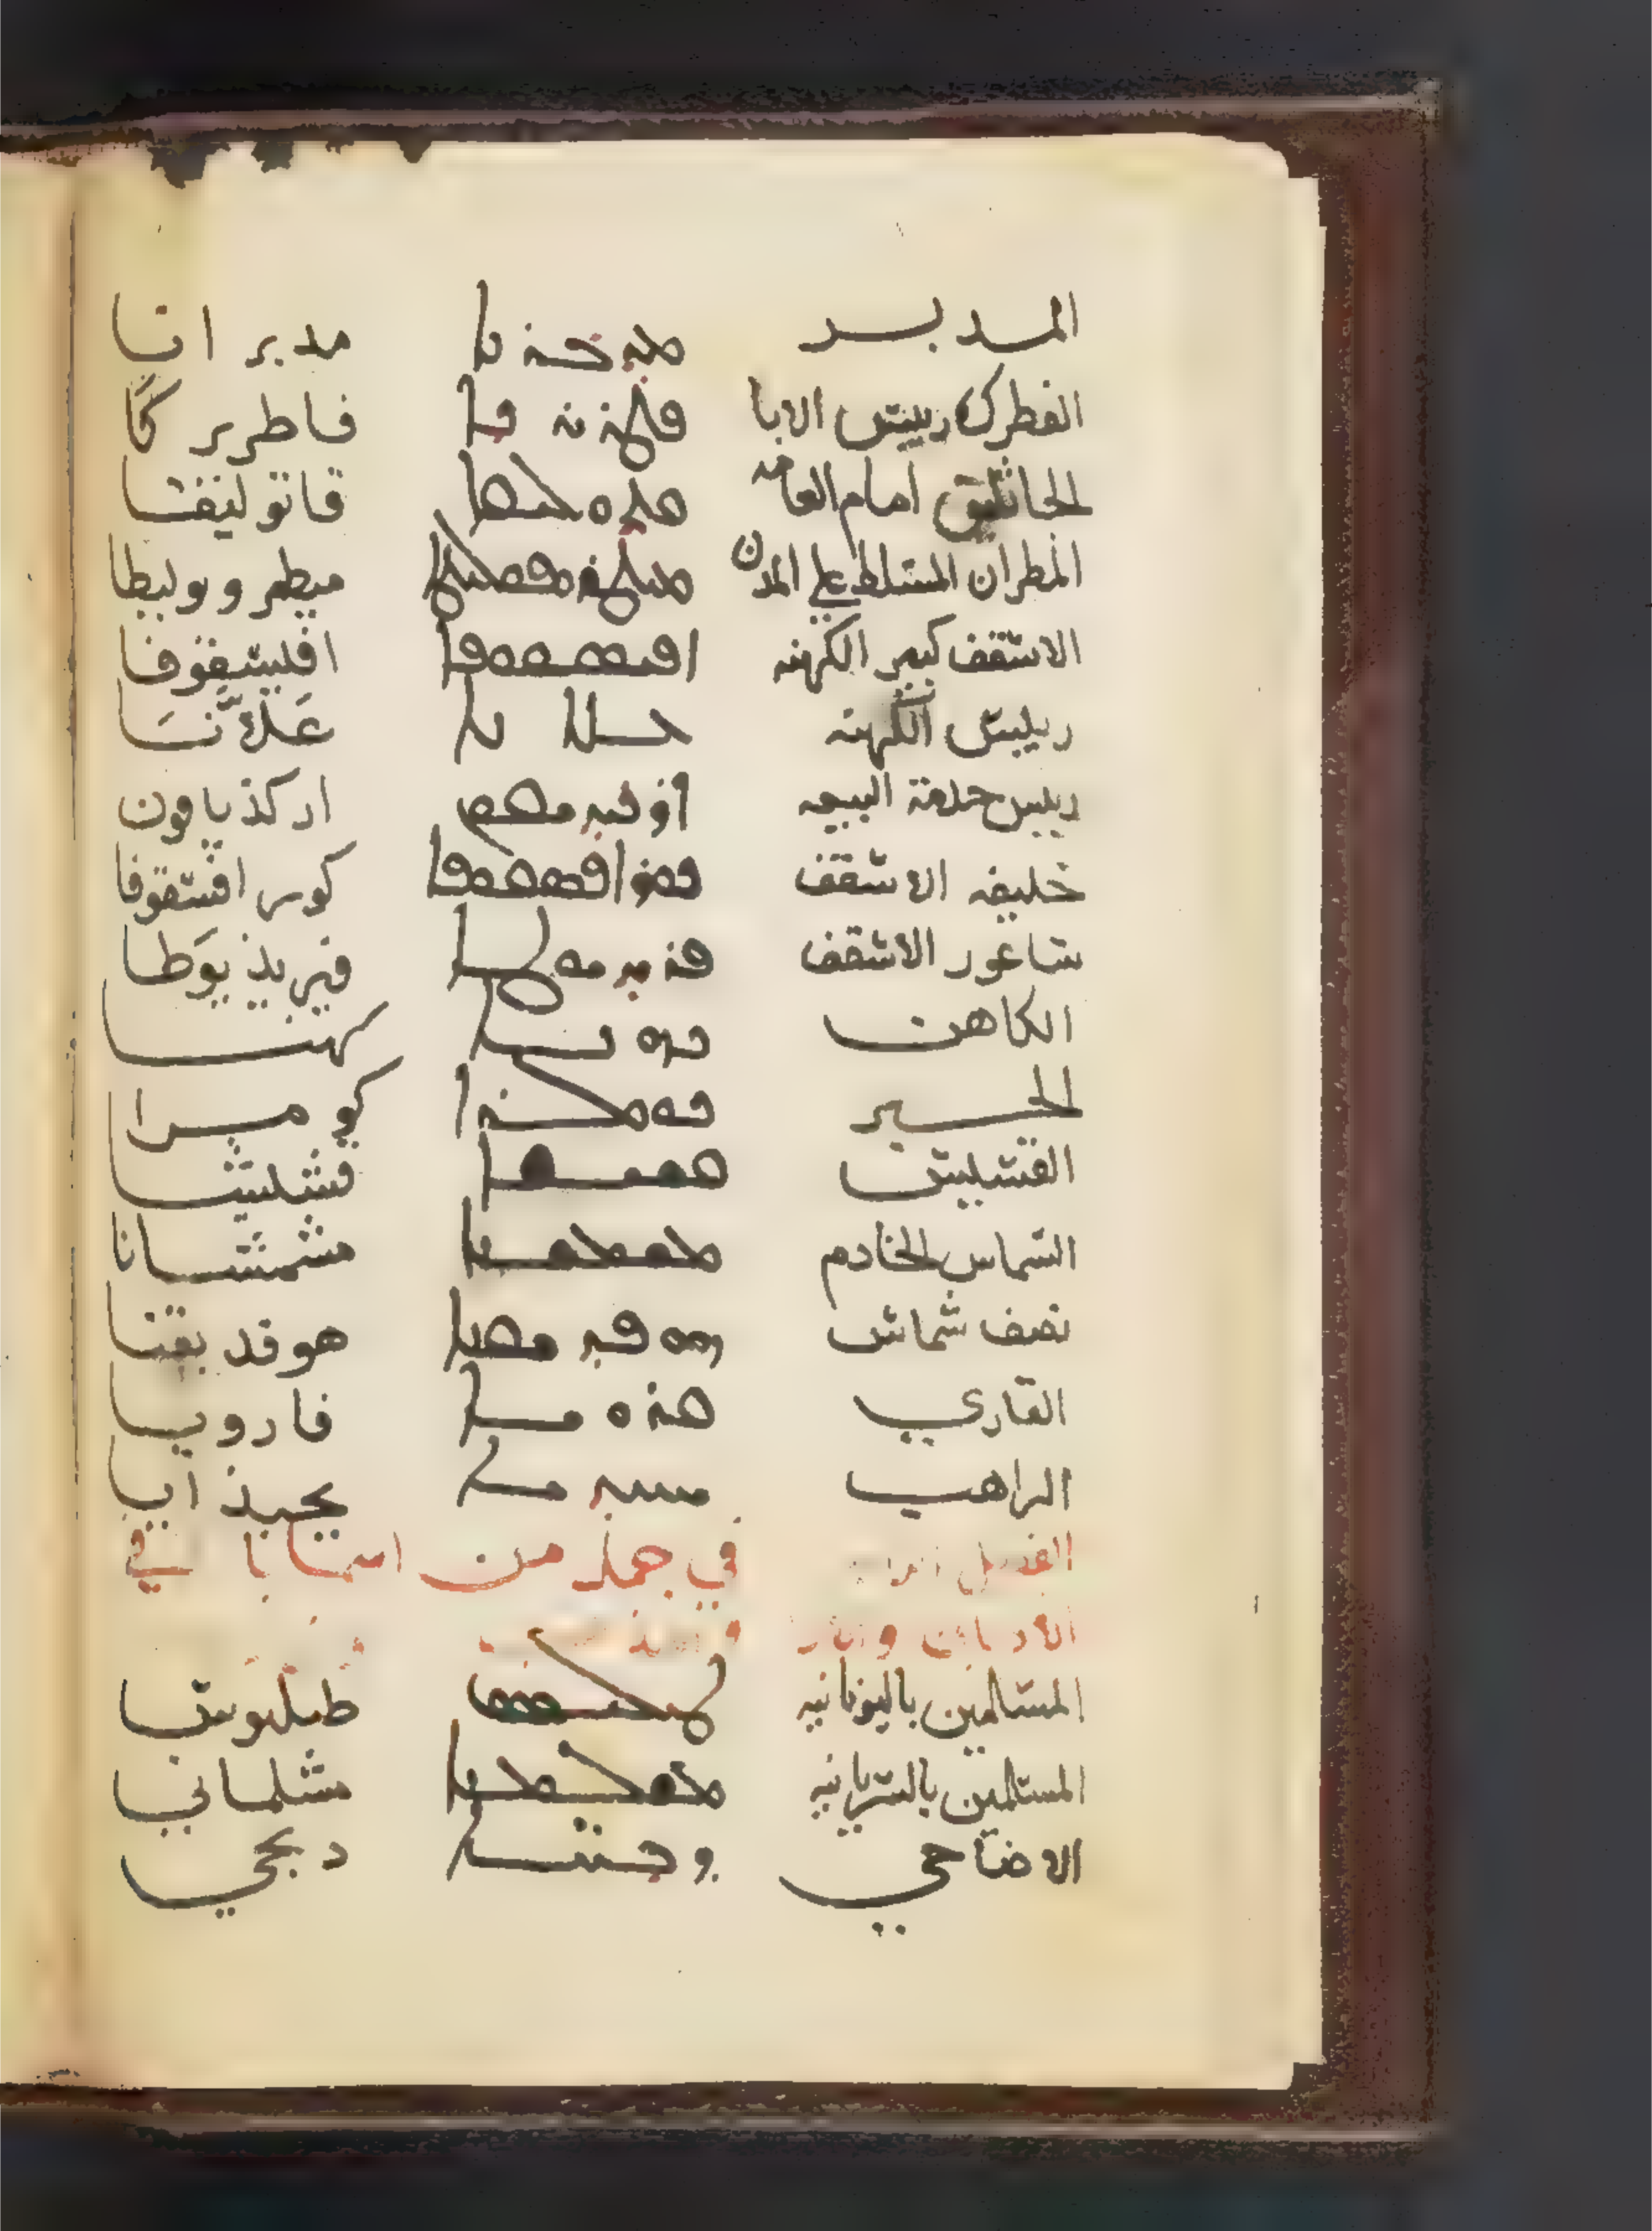 المدبر ܡܕܒܪܢܐ مدبرانا
الفطرك رييس الابا ܦܛܪܝܪܟܐ فاطريركا
الجاثليق امام العامه ܩܬܘܠܝܩܐ قاتوليقا
المطران المسلط علي المدن ܡܝܛܪܘܦܘܠܝܛܐ ميطروبوليطا
الاسقف كبير الكهنه ܐܦܝܣܩܘܦܐ افيسقوفا
رييس الكهنه ܥܠܠܢܐ عللنا
رييس خدمة البيعه ܐܪܟܕܝܩܘܢ اركذياقون
خليفه الاسقف ܟܘܪܐܦܣܩܘܦܐ كورافسقوفا
ساعور الاسقف ܦܪܝܕܝܘܛܐ فيريذيوطا
الكاهن ܟܗܢܐ كهنا
الحبر ܟܘܡܪܐ كومرا
القسيس ܩܫܝܫܐ قشيشا
الشماس الخادم ܡܫܡܫܢܐ مشمشانا
نصف شماس ܗܘܦܕܝܩܢܐ هوفديقنا
القاري ܩܪܘܝܐ قارويا
الراهب ܝܚܝܕܝܐ يحيذايا
الفصل في جمله من اسما في
الاديان
المسلمين باليونانيه طيليوس
المسلمين بالسريانيه ܡܫܠܡܢܐ مشلماني
الاضاحي ܕܒܚܐ دبحي